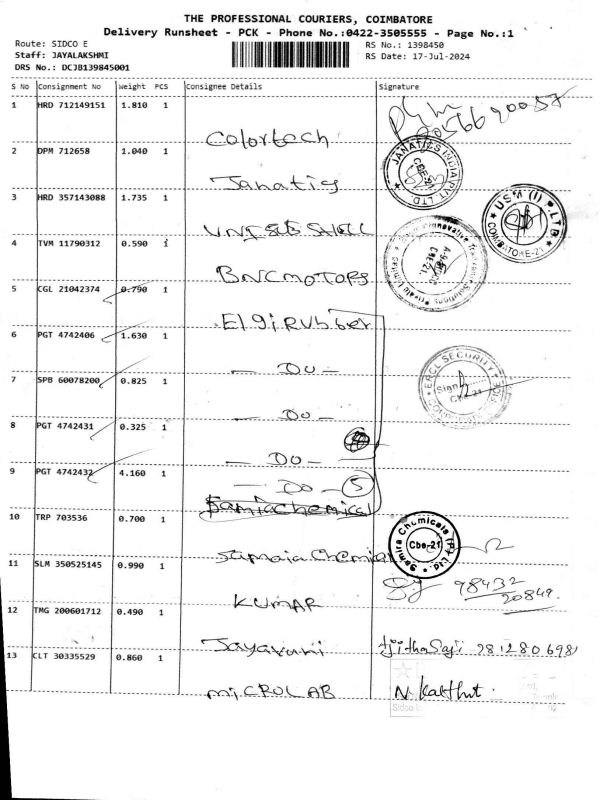 THE PROFESSIONAL COURIERS, COIMBATORE
Delivery Runsheet - PCK - Phone No.:0422-3505555 - Page No.:1
Route: SIDCO E
RS No.: 1398450
Staff: JAYALAKSHMI
RS Date: 17-Jul-2024
DRS No.: DCJB139845001
S No Consignment No Weight PCS Consignee Details Signature
1 HRD 712149151 1.810 1
Colortech
2 DPM 712658 1.040 1
Janatis
JANATICS INDIA PVT LTD
CBE-21
3 HRD 357143088 1.735 1
USM (I) P.LTD
COIMBATORE-21
4 TVM 11790312 0.590 1
BNCMOTORS
Innovative Transport Solutions Private Limited
CBE-21
5 CGL 21042374 0.790 1
Elgi Rubber
6 PGT 4742406 1.630 1
- Do -
ERCL SECURITY
Sign
Cbe-21
7 SPB 60078200 0.825 1
- Do -
8 PGT 4742431 0.325 1
- Do -
9 PGT 4742432 4.160 1
- Do - 5
10 TRP 703536 0.700 1
Samira Chemicals (P) Ltd.
Cbe-21
11 SLM 350525145 0.990 1
KUMAR
98432
20849
12 TMG 200601712 0.490 1
Jayavani
9812806981
13 CLT 30335529 0.860 1
MICROLAB
N. Karthik.